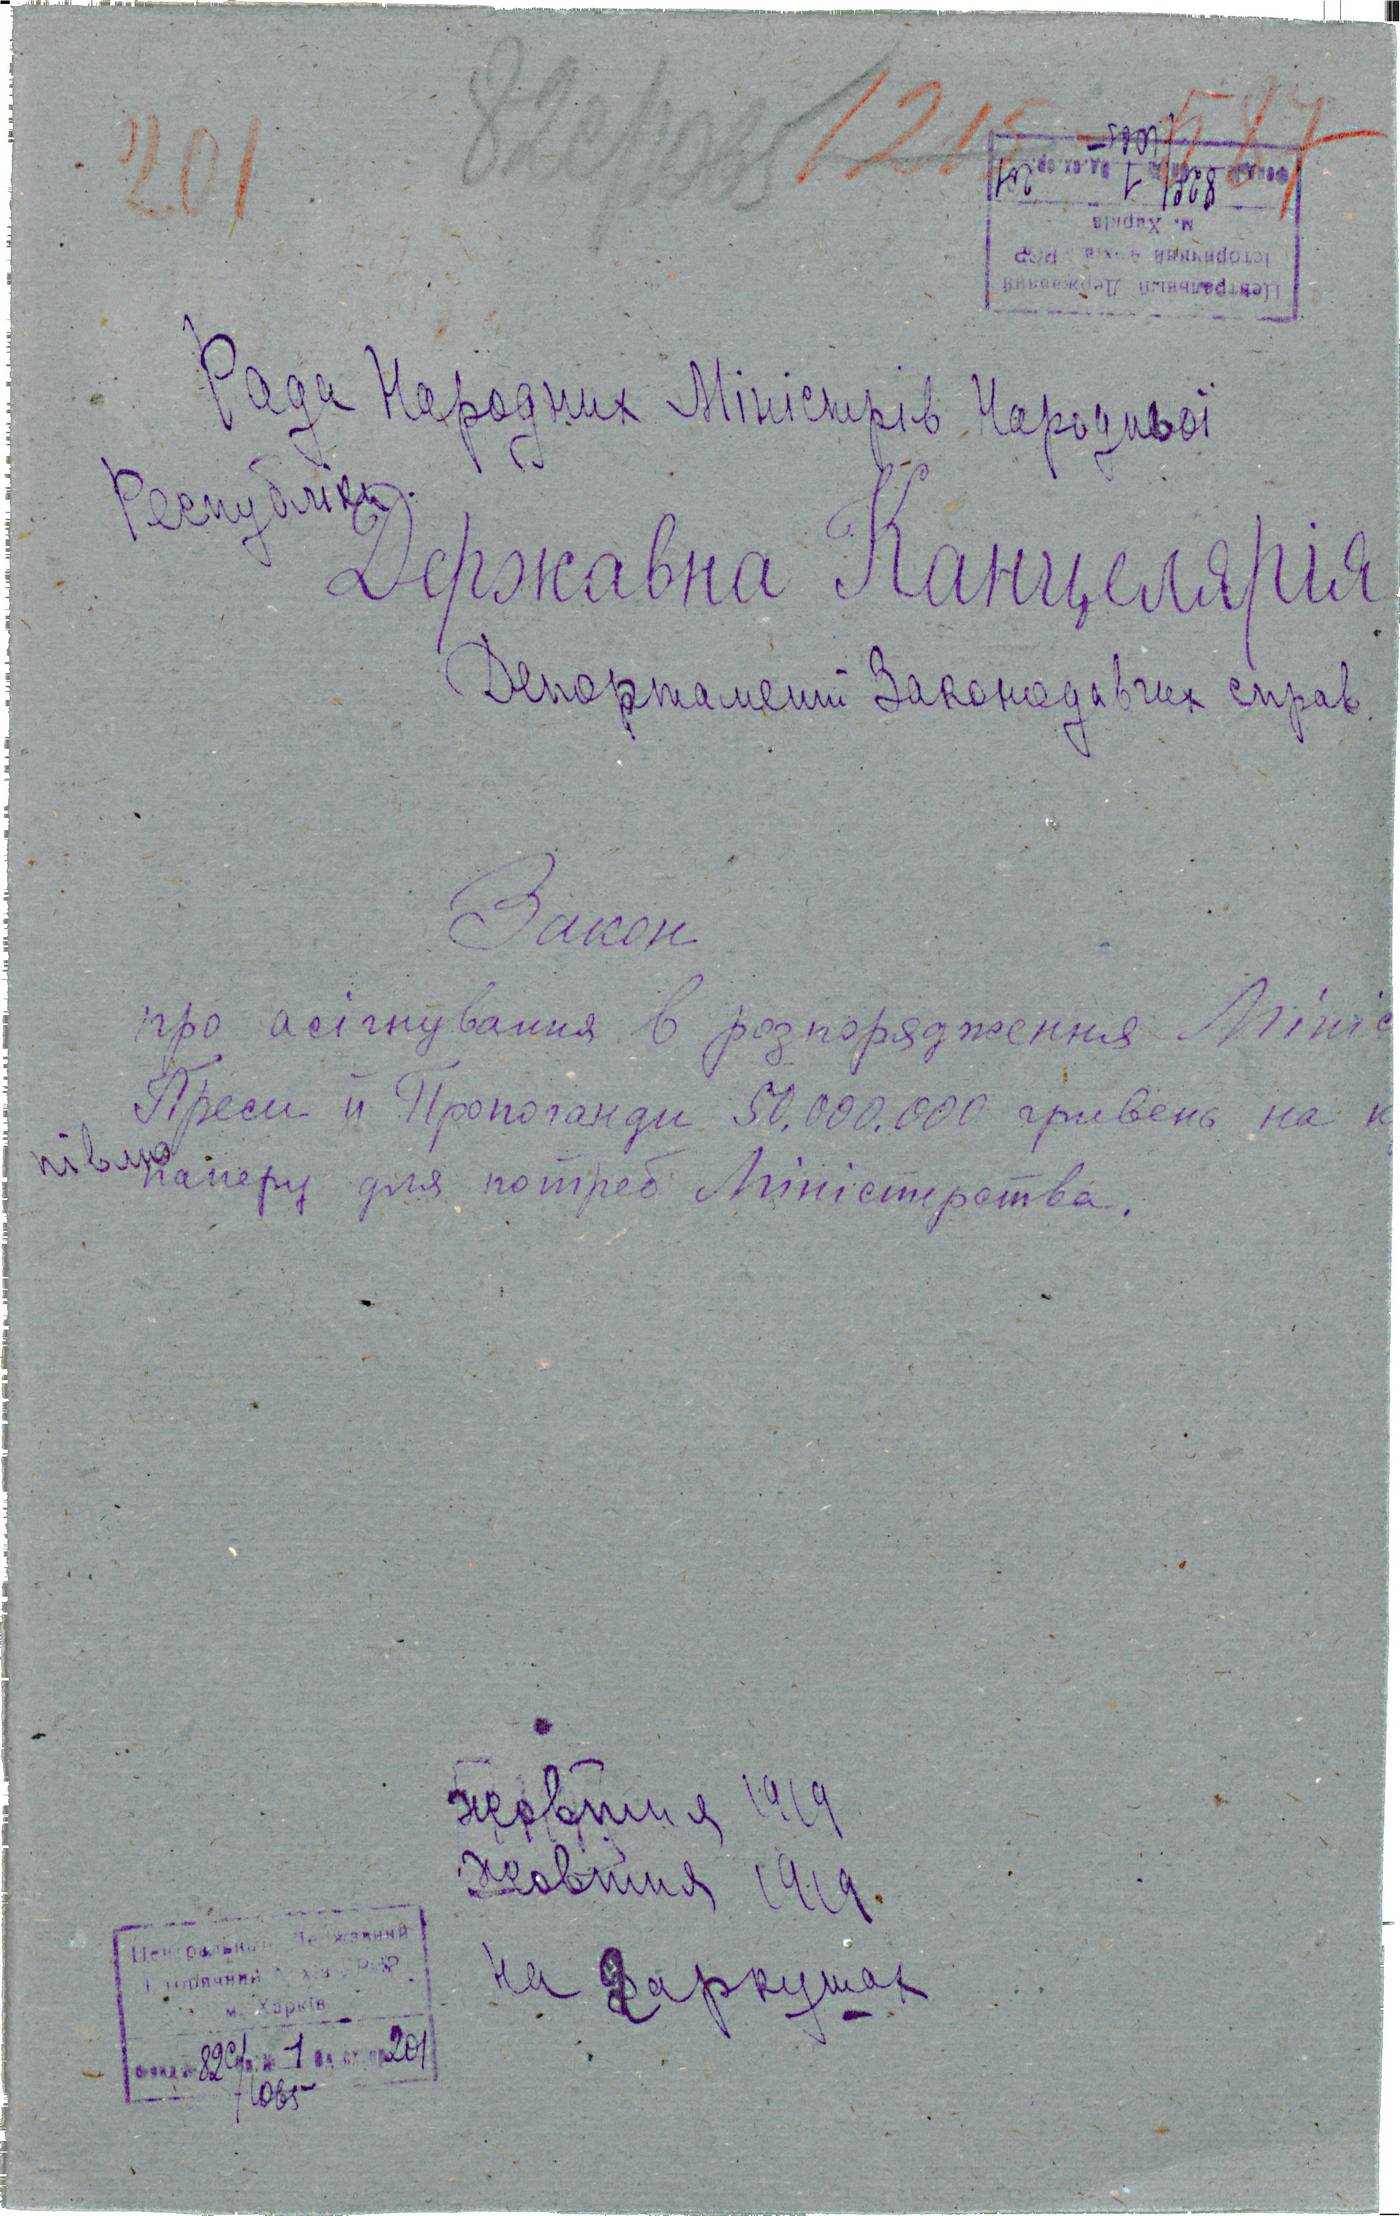 201
82с/1065
1215 - 587
Центральный Державний
Історичний Архів УРСР
м. Харків
Фонд № 82с/1065 оп. № 1 од. сх. ор. 201
Рада Народних Міністрів Народньої
Республіки.
Державна Канцелярія
Департамент Законодавчих справ.
Закон
про асігнування в розпорядження Мініс
Преси й Пропоганди 50.000.000 гривень на к
півлю паперу для потреб Міністерства.
жовтня 1919
жовтня 1919.
на 2 аркушах
Центральний Державний
Історичний Архів УРСР
м. Харків
Фонд № 82с/1065 оп. № 1 од. сх. ор. 201